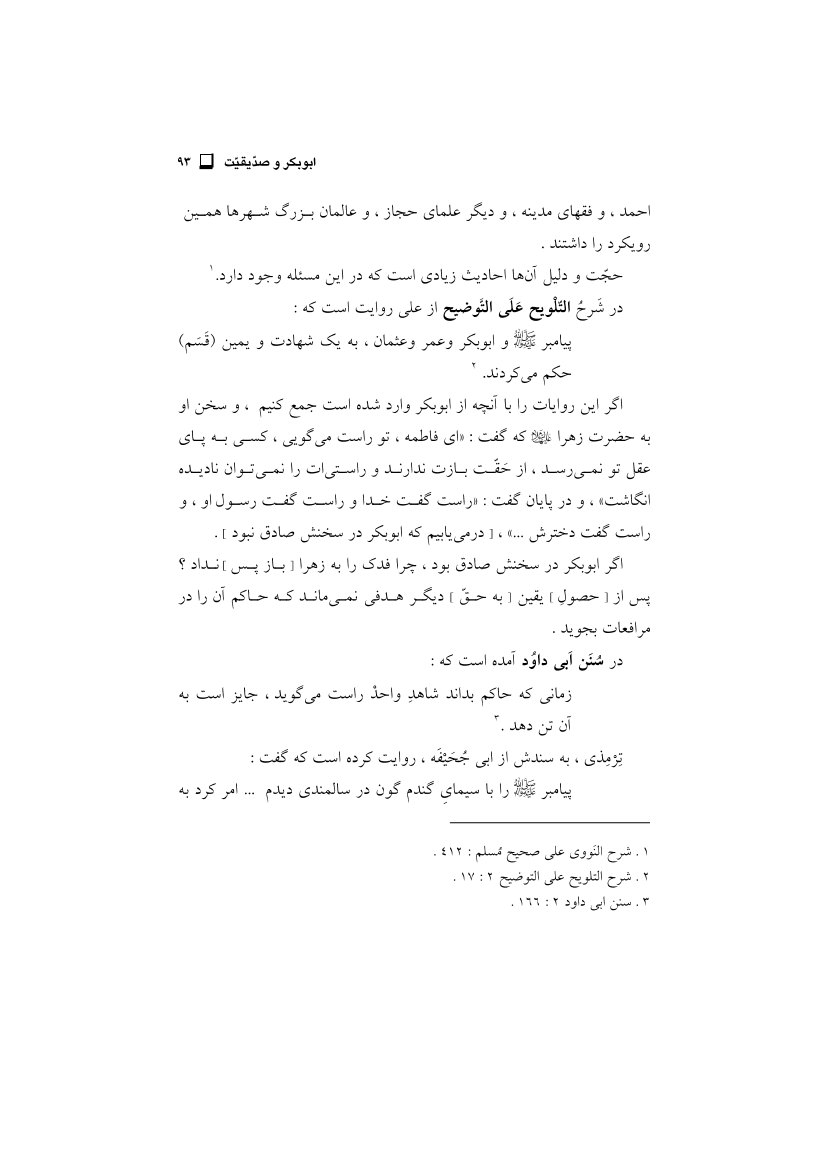 ابوبکر و صدّیقیّت ❏ ۹۳
احمد ، و فقهای مدینه ، و دیگر علمای حجاز ، و عالمان بـزرگ شـهرها همـین
رویکرد را داشتند .
حجّت و دلیل آن‌ها احادیث زیادی است که در این مسئله وجود دارد.۱
در شَرحُ التّلْویح عَلَی التَّوضیح از علی روایت است که :
پیامبر ﷺ و ابوبکر وعمر وعثمان ، به یک شهادت و یمین (قَسَم)
حکم می‌کردند. ۲
اگر این روایات را با آنچه از ابوبکر وارد شده است جمع کنیم ، و سخن او
به حضرت زهرا که گفت : «ای فاطمه ، تو راست می‌گویی ، کسـی بـه پـای
عقل تو نمـی‌رسـد ، از حَقّـت بـازت ندارنـد و راسـتی‌ات را نمـی‌تـوان نادیـده
انگاشت» ، و در پایان گفت : «راست گفـت خـدا و راسـت گفـت رسـول او ، و
راست گفت دخترش ...» ، [ درمی‌یابیم که ابوبکر در سخنش صادق نبود ] .
اگر ابوبکر در سخنش صادق بود ، چرا فدک را به زهرا [ بـاز پـس ] نـداد ؟
پس از [ حصولِ ] یقین [ به حـقّ ] دیگـر هـدفی نمـی‌مانـد کـه حـاکم آن را در
مرافعات بجوید .
در سُنَن اَبی داوُد آمده است که :
زمانی که حاکم بداند شاهدِ واحدْ راست می‌گوید ، جایز است به
آن تن دهد .۳
تِرْمِذی ، به سندش از ابی جُحَیْفَه ، روایت کرده است که گفت :
پیامبر ﷺ را با سیمایِ گندم گون در سالمندی دیدم ... امر کرد به
۱ . شرح النَووی علی صحیح مُسلم : ٤۱۲ .
۲ . شرح التلویح علی التوضیح ۲ : ۱۷ .
۳ . سنن ابی داود ۲ : ۱٦٦ .